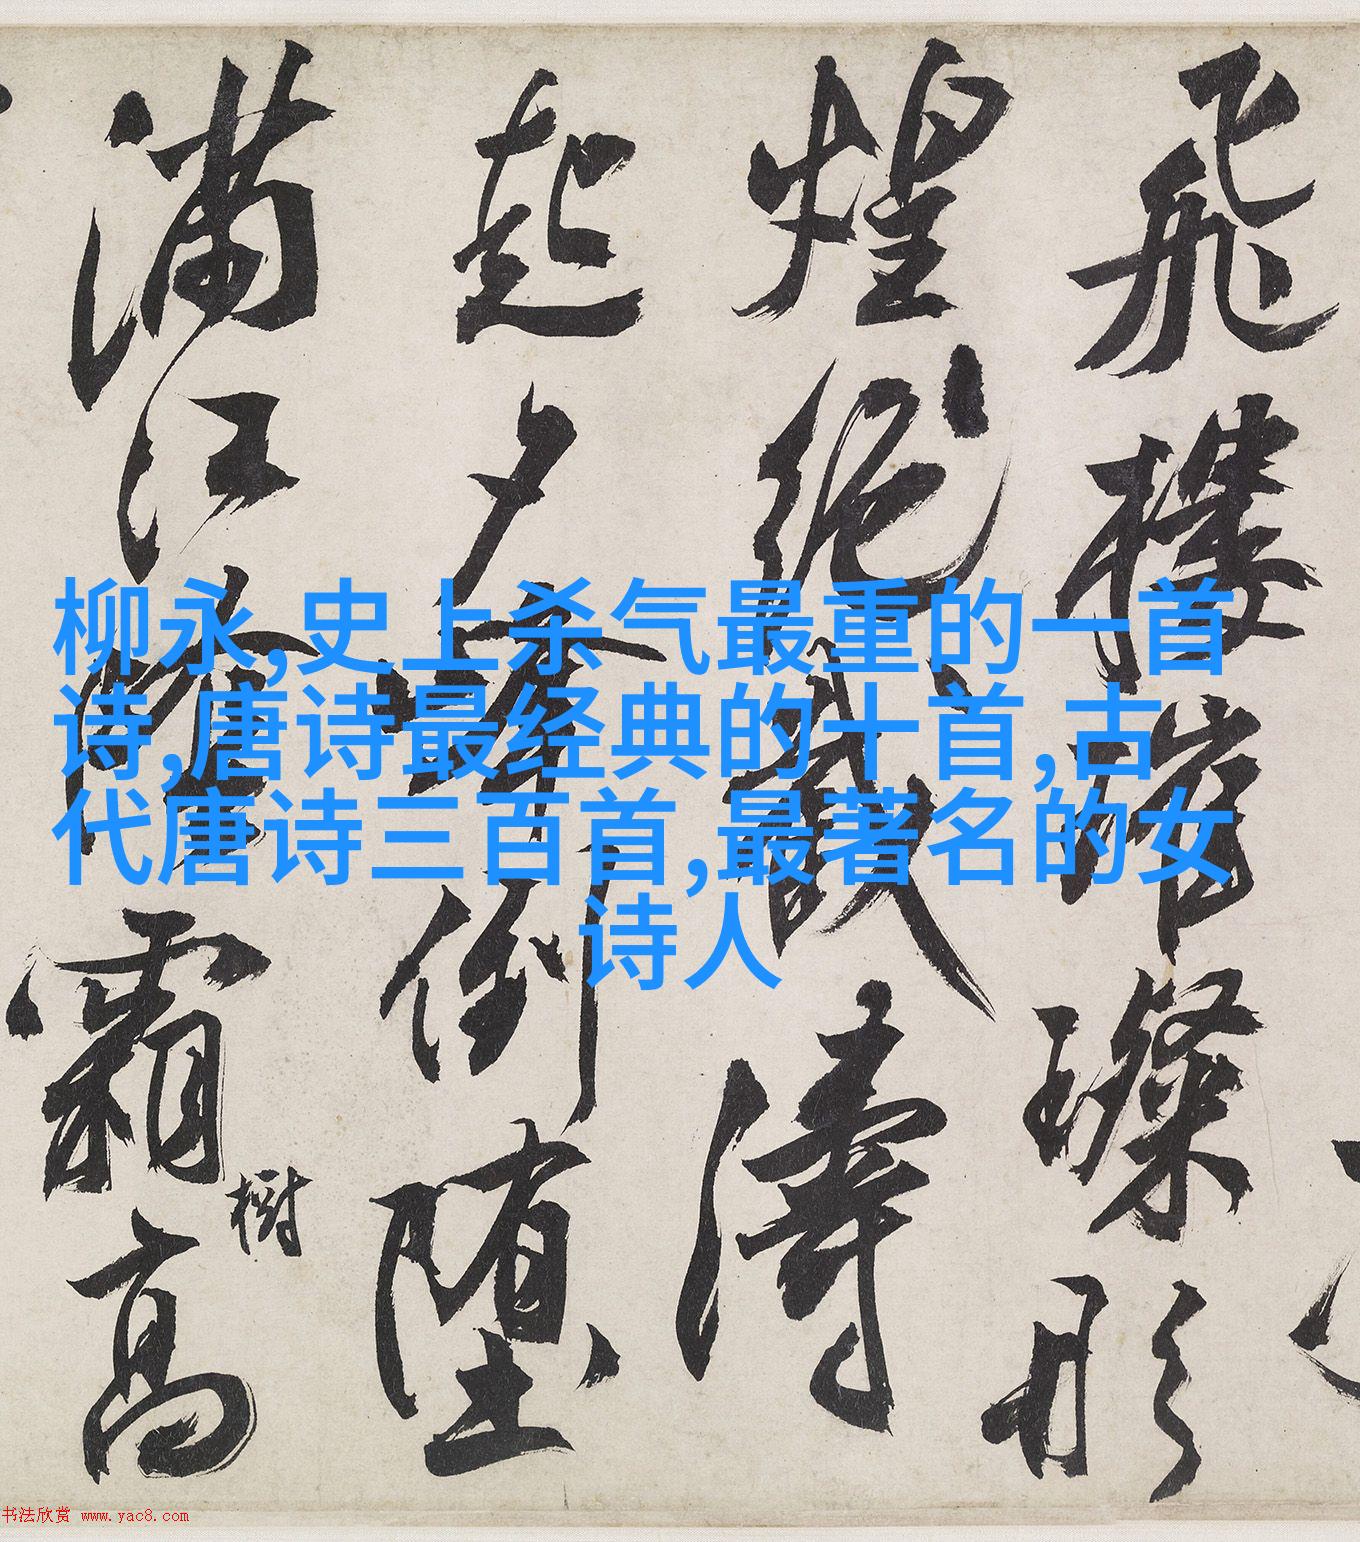 飛樓璀璨形
煌絶濤
起夕倒墮
滿江霜高
樹
柳永,史上杀气最重的一首
诗,唐诗最经典的十首,古
代唐诗三百首,最著名的女
诗人
书法欣赏 www.yac8.com